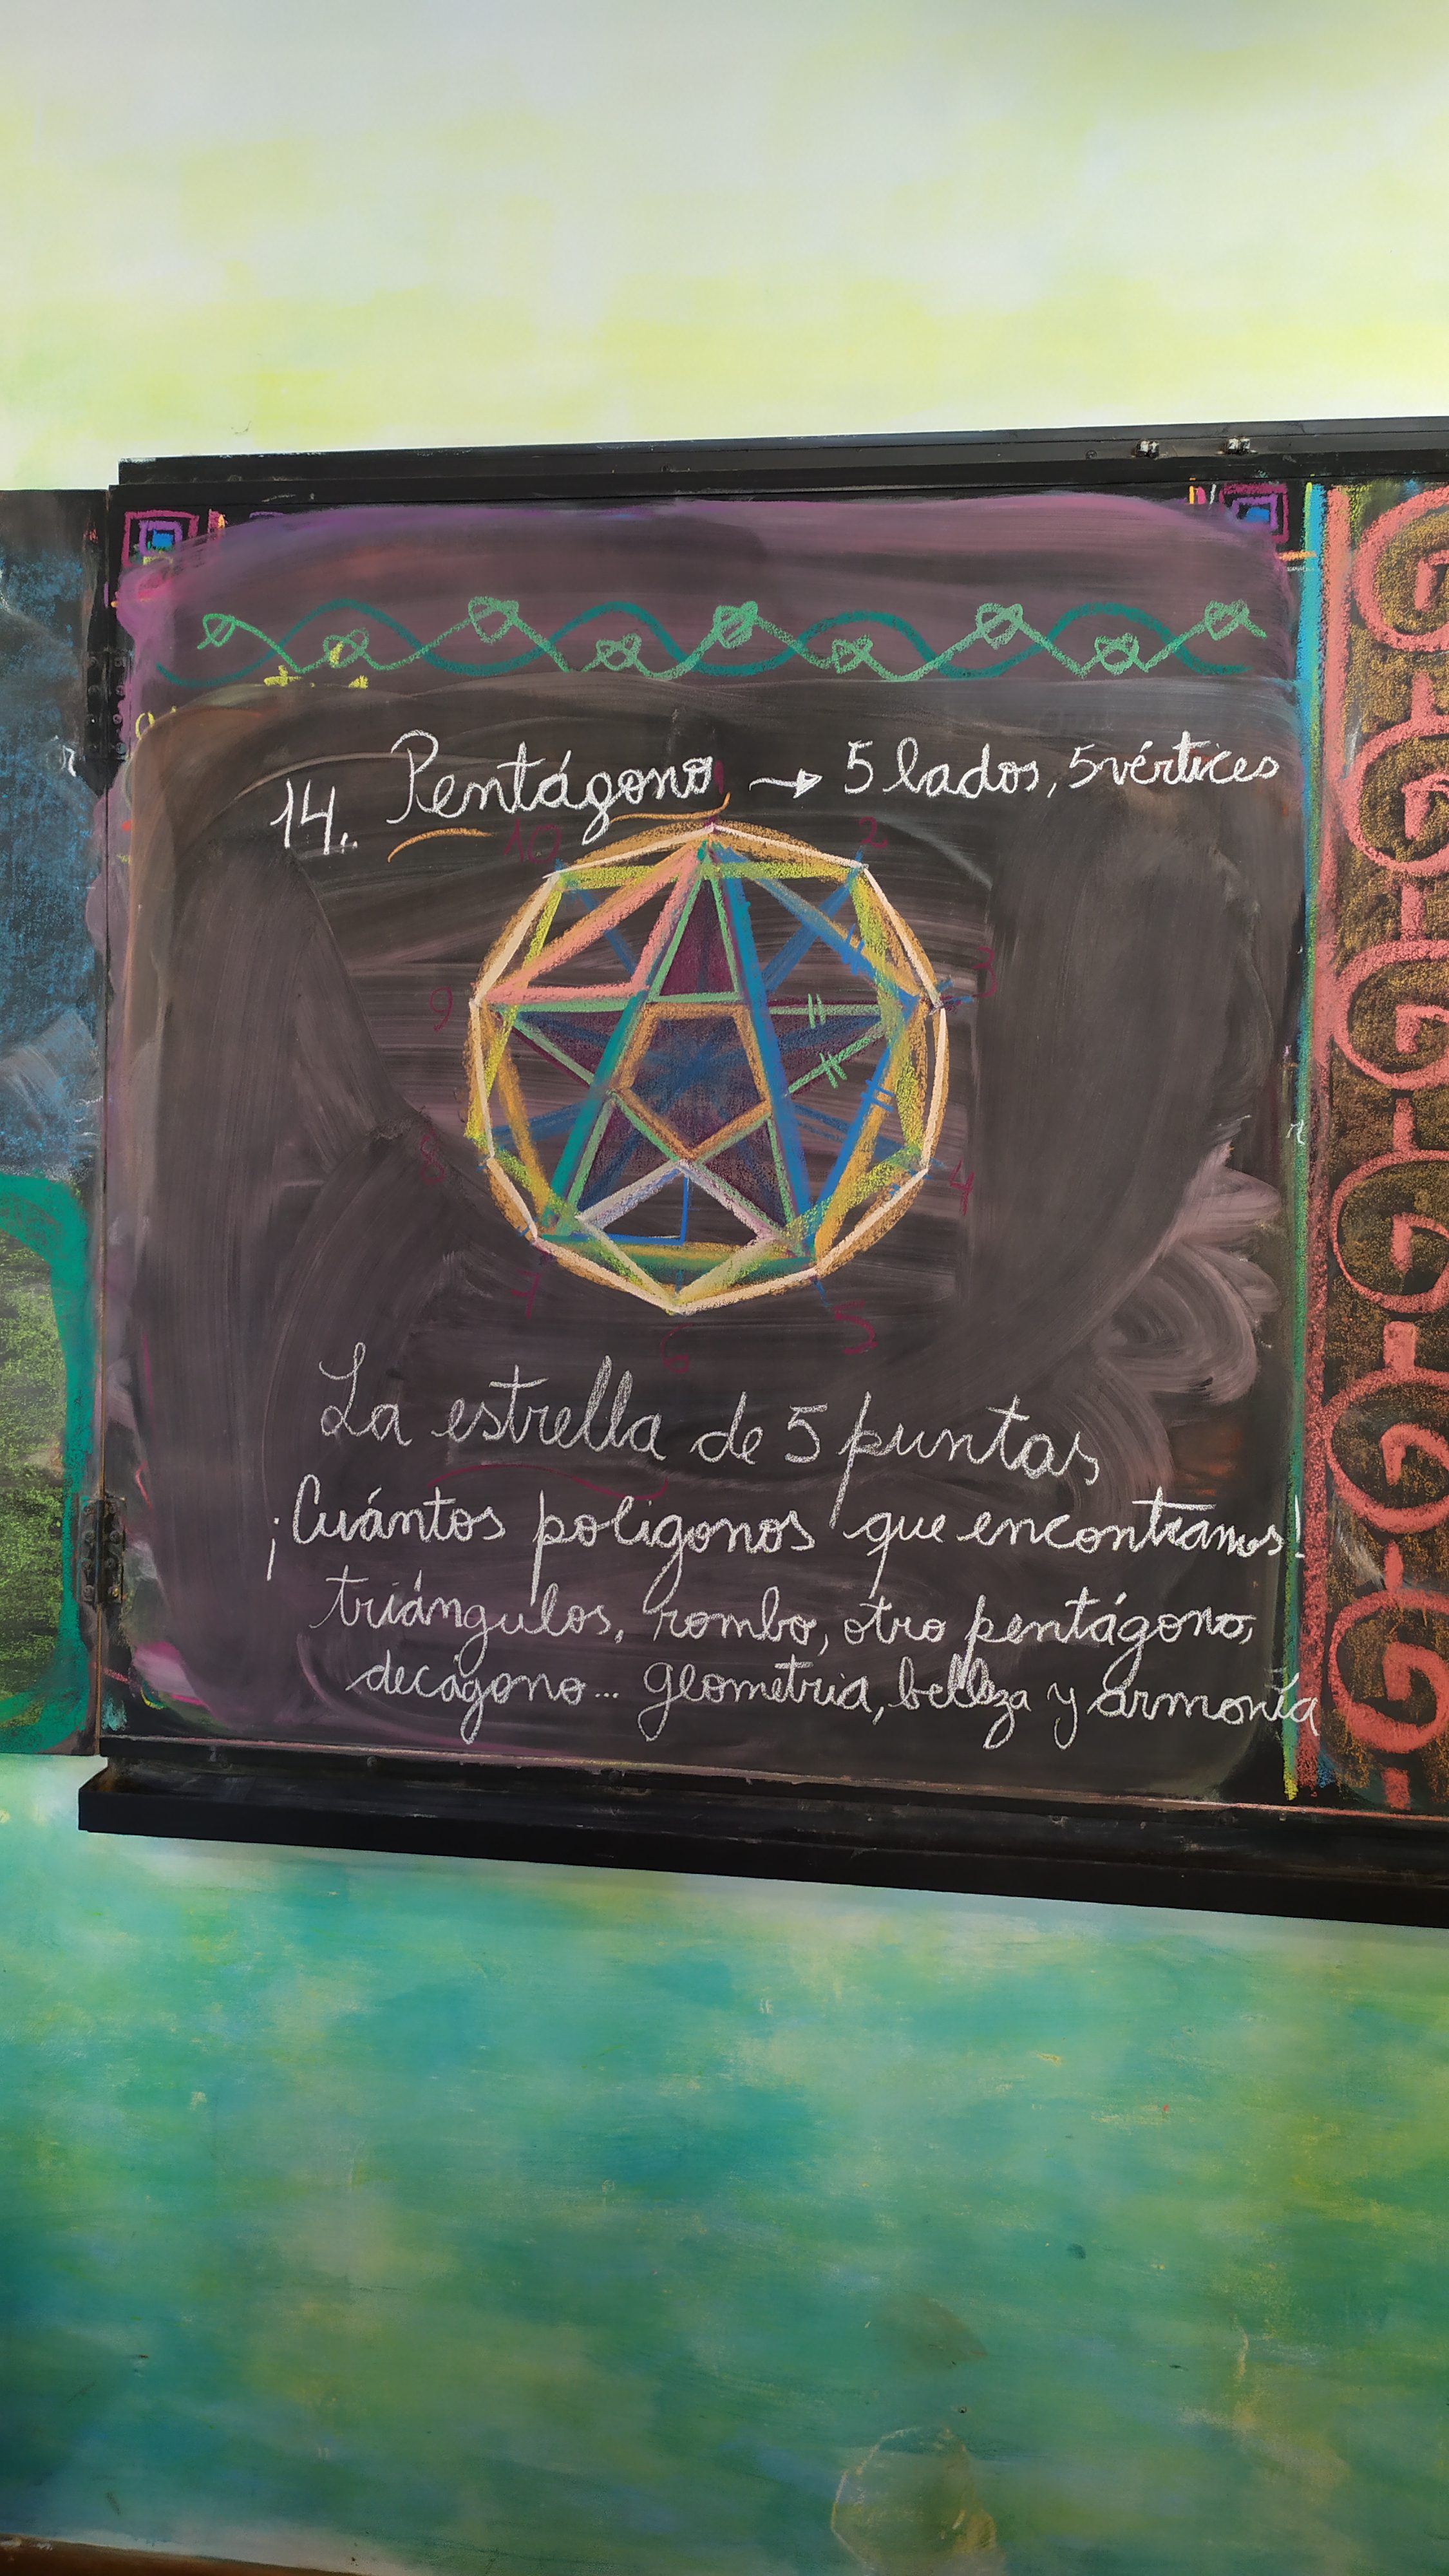 14. Pentágono → 5 lados, 5 vértices
1
10 2
9 3
8 4
7 5
6
La estrella de 5 puntas
¡Cuántos poligonos que encontramos!
triángulos, rombo, otro pentágono,
decágono... geometria, belleza y armonía